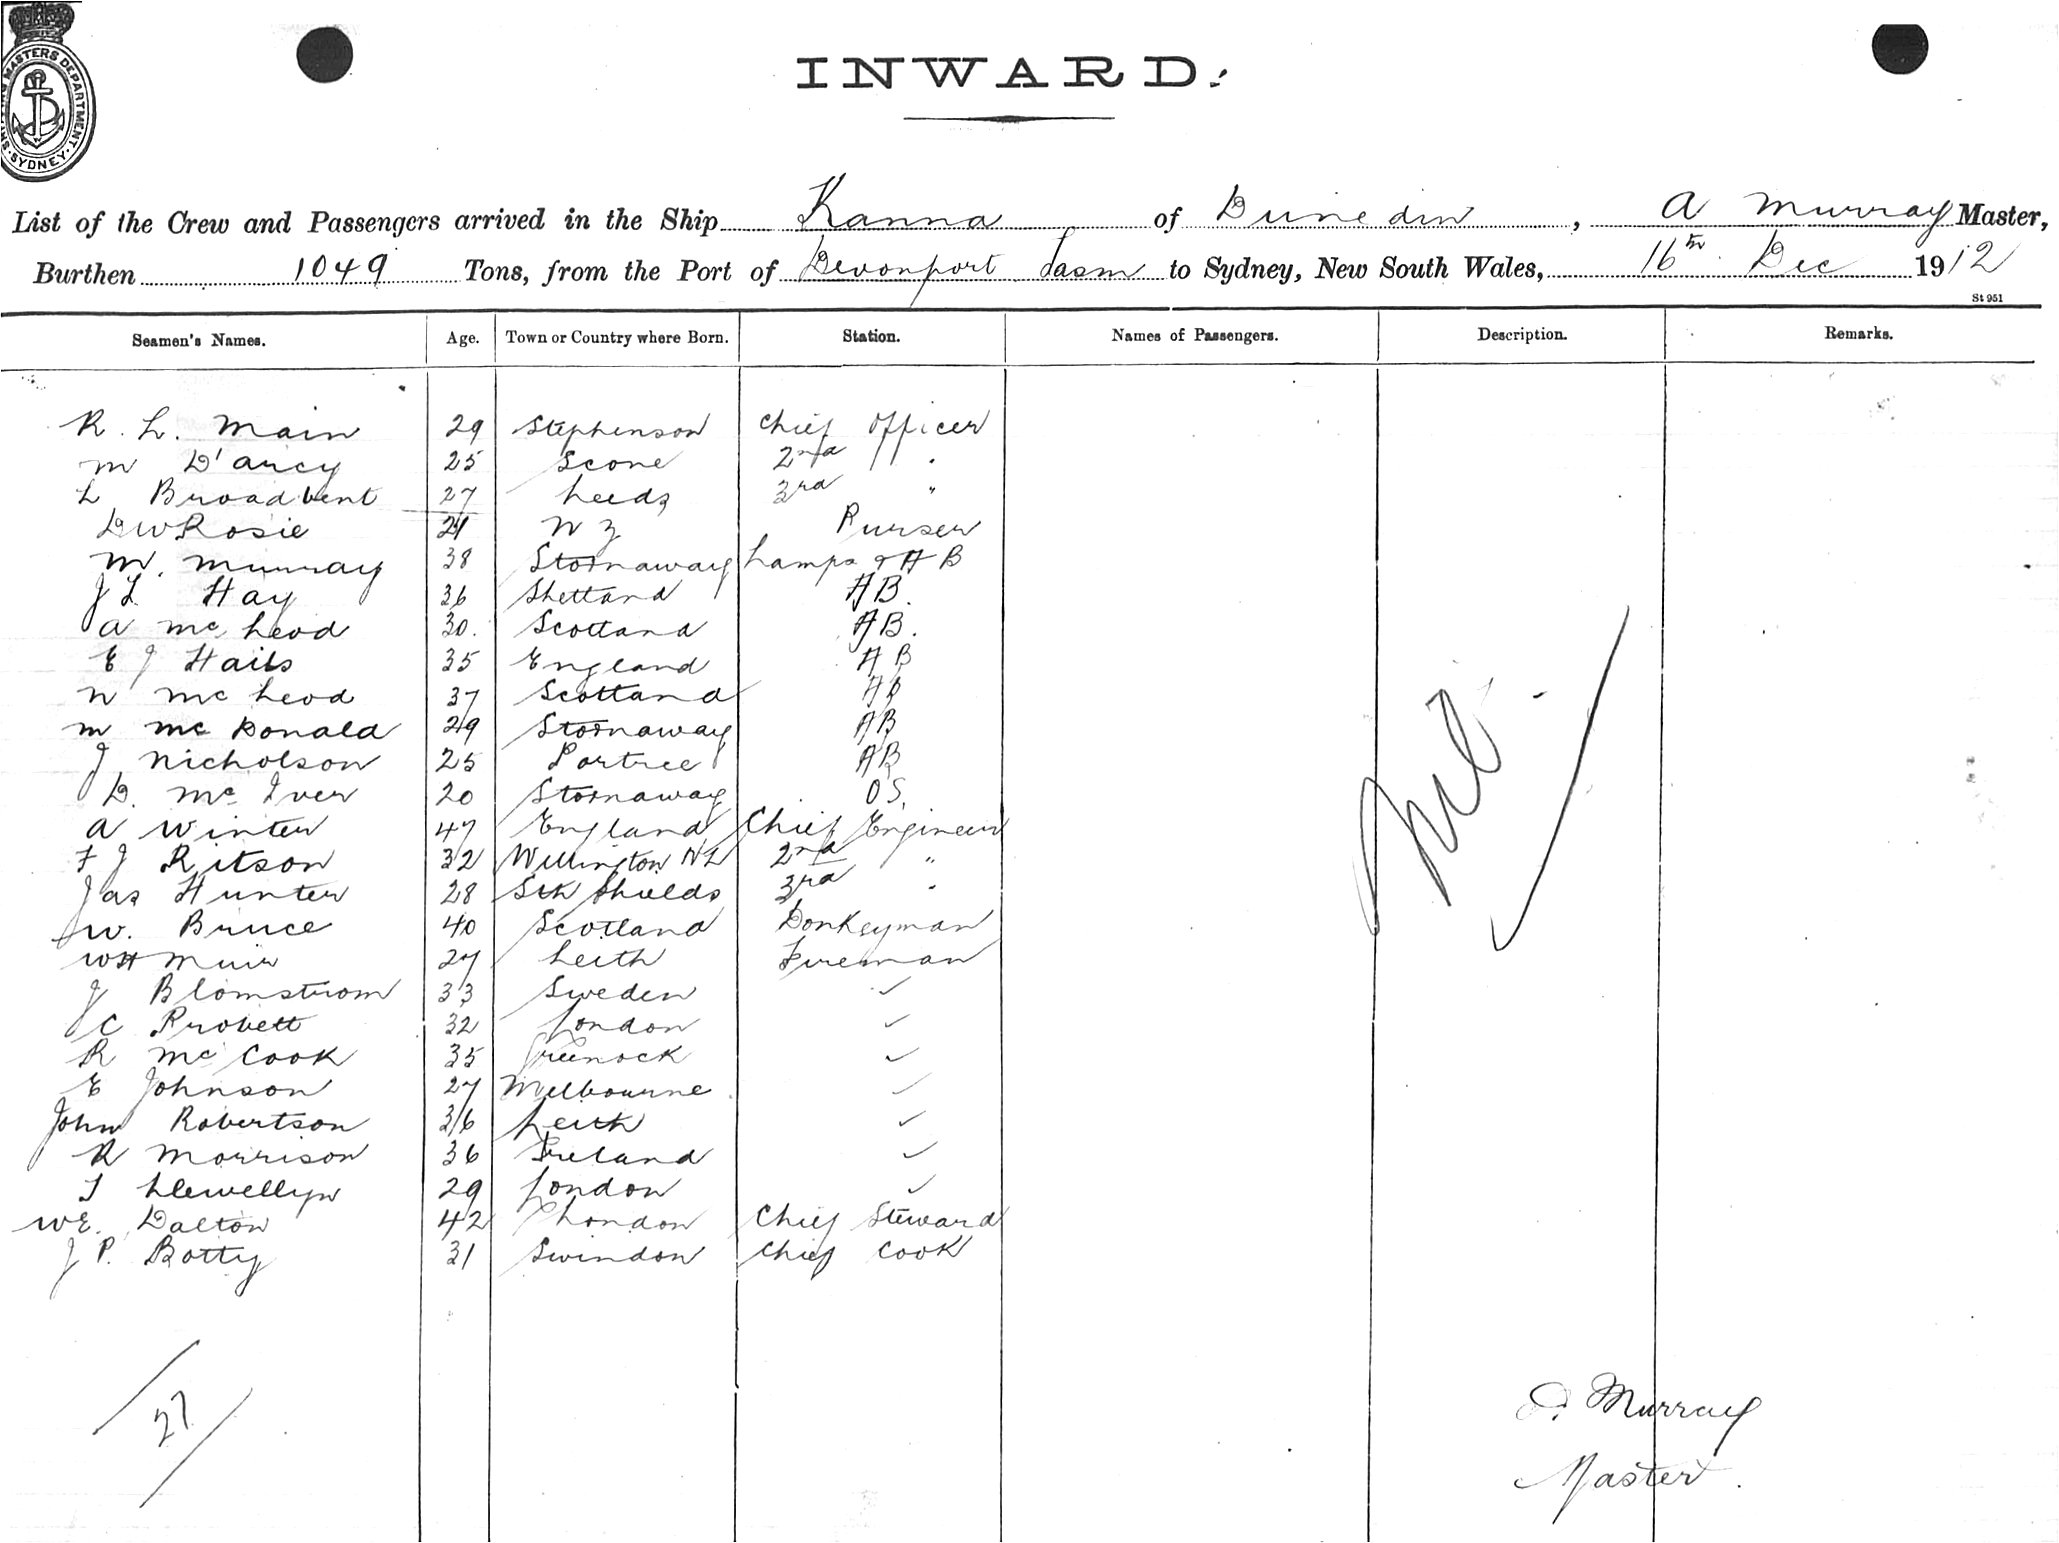 SHIPPING MASTERS DEPARTMENT · SYDNEY ·
INWARD.
List of the Crew and Passengers arrived in the Ship Kanna of Dunedin, A Murray Master,
Burthen 1049 Tons, from the Port of Devonport Tasm to Sydney, New South Wales, 16th Dec 1912
St 951
Seamen's Names. Age. Town or Country where Born. Station. Names of Passengers. Description. Remarks.
R. L. Main 29 Stephenson Chief Officer
M D'arcy 25 Scone 2nd "
L Broadbent 27 Leeds 3rd "
D W Rosie 21 N Z Purser
M. Murray 38 Stornaway Lamps & A B
J L Hay 36 Shetland AB.
A Mc Leod 30. Scotland AB.
E J Hails 35 England A B
N Mc Leod 37 Scotland AB
M Mc Donald 29 Stornaway AB
J Nicholson 25 Portree AB
D. Mc Iver 20 Stornaway OS.
A Winter 47 England Chief Engineer
F J Ritson 32 Willington 2nd "
Jas Hunter 28 Sth Shields 3rd "
W. Bruce 40 Scotland Donkeyman
WH Muir 27 Leith Fireman
J Blomstrom 33 Sweden ✓
C Probett 32 London ✓
R Mc Cook 35 Greenock ✓
E Johnson 27 Melbourne ✓
John Robertson 36 Leith ✓
R Morrison 36 Ireland ✓
T Llewellyn 29 London ✓
WE. Dalton 42 London Chief Steward
J P. Botty 31 Swindon Chief Cook
Nil.
27
A. Murray
Master.